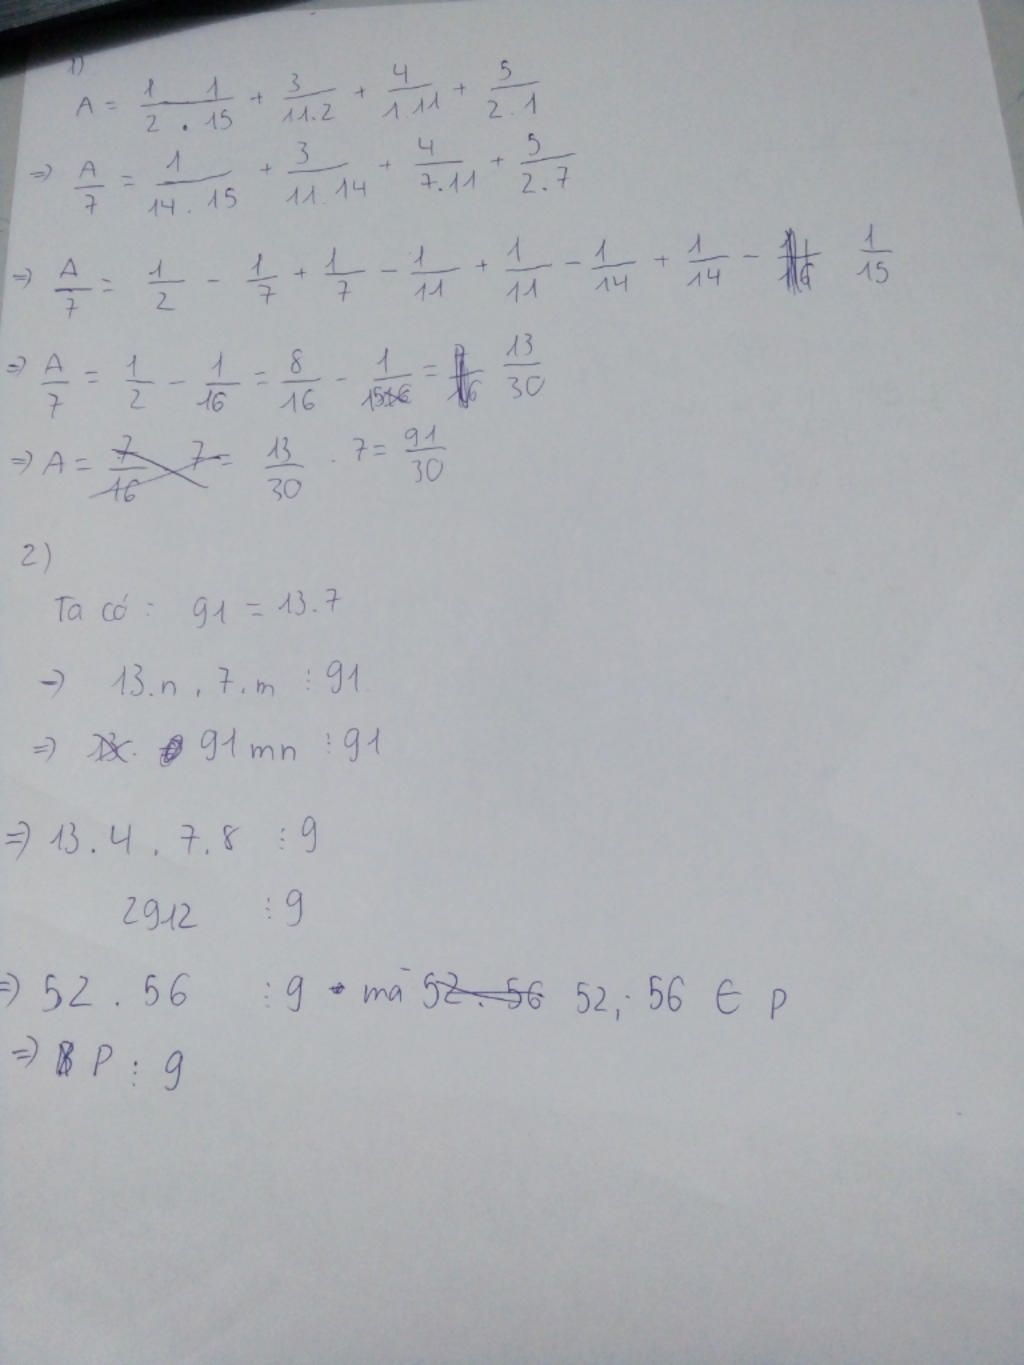 1)
A = 1 1 / 2 . 15 + 3 / 11.2 + 4 / 1.11 + 5 / 2.1
=> A/7 = 1 / 14.15 + 3 / 11.14 + 4 / 7.11 + 5 / 2.7
=> A/7 = 1/2 - 1/7 + 1/7 - 1/11 + 1/11 - 1/14 + 1/14 - 1/15
=> A/7 = 1/2 - 1/16 = 8/16 - 1/15 = 13/30
=> A = 7/16 7 = 13/30 . 7 = 91/30
2)
Ta có : 91 = 13.7
=> 13.n . 7.m ⋮ 91
=> 91 mn ⋮ 91
=> 13.4 . 7.8 ⋮ 9
2912 ⋮ 9
=> 52 . 56 ⋮ 9 mà 52 . 56 52; 56 ∈ P
=> P ⋮ 9